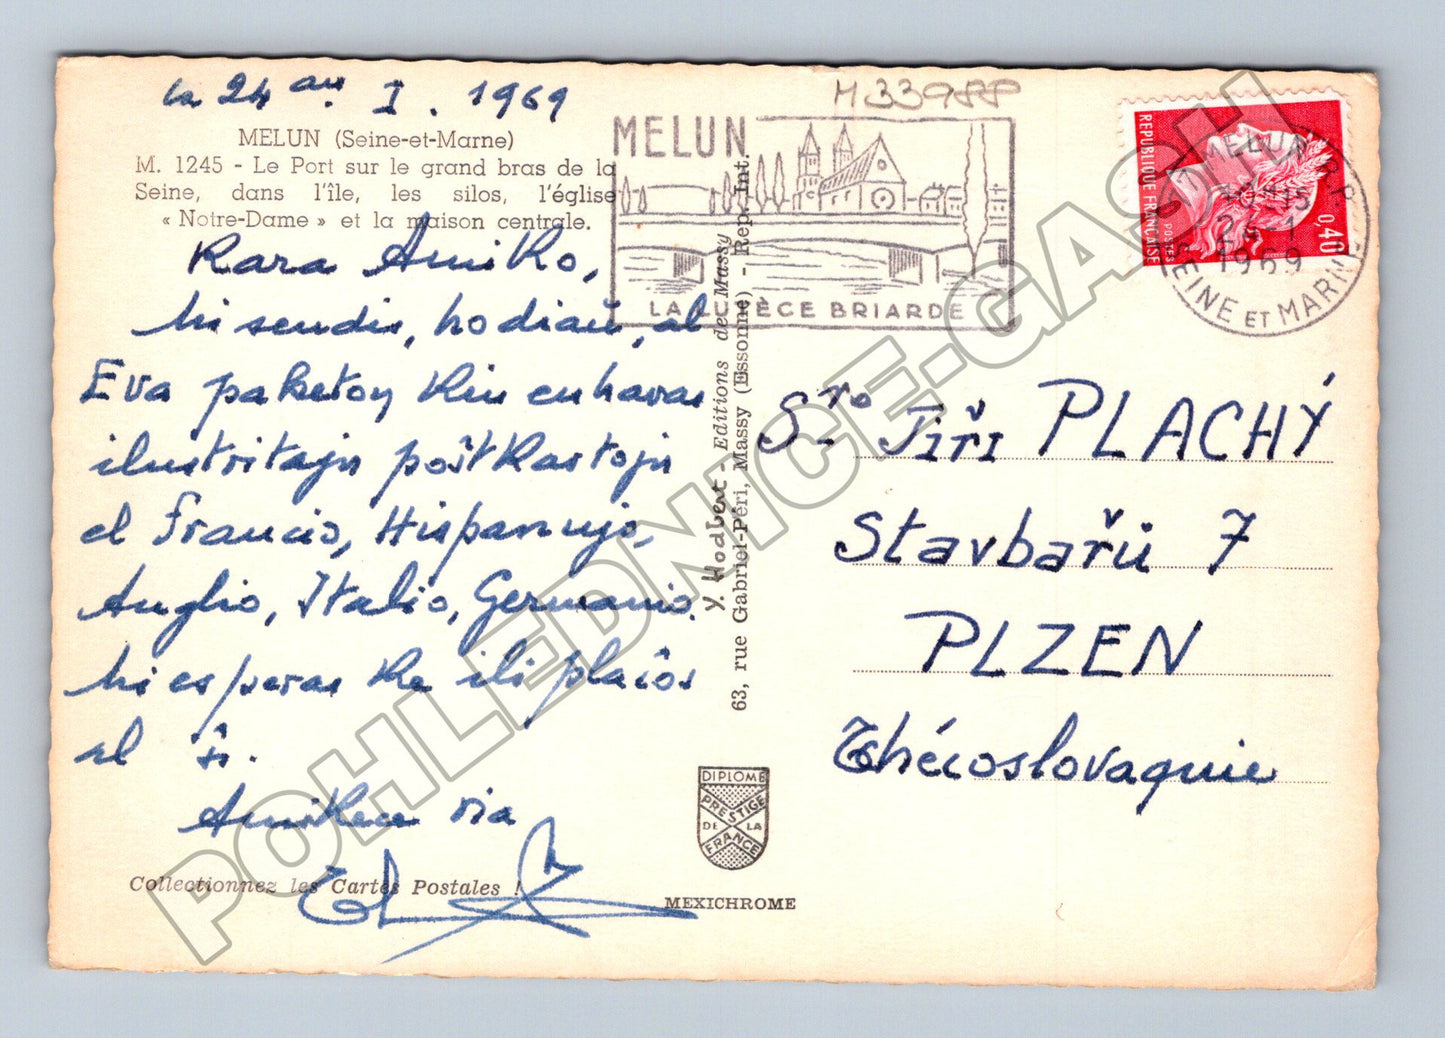 la 24an I. 1969
M339PP
MELUN (Seine-et-Marne)
M. 1245 - Le Port sur le grand bras de la
Seine, dans l'île, les silos, l'église
« Notre-Dame » et la maison centrale.
Kara Amiko,
Mi sendis, hodiaŭ, al
Eva paketon kiu enhavas
ilustritajn poŝtkartojn
el Francio, Hispanujo,
Anglio, Italio, Germanio.
Mi esperas ke ili plaĉos
al ŝi.
Amikece via
Collectionnez les Cartes Postales !
Y. Hodbert - Editions de Massy
63, rue Gabriel-Péri, Massy (Essonne) - Rep. Int.
DIPLOME
PRESTIGE
DE LA
FRANCE
MEXICHROME
MELUN
LA LUTÈCE BRIARDE
REPUBLIQUE FRANÇAISE
POSTES
0,40
MELUN R.P.
1969
SEINE ET MARNE
Sro Jiři PLACHÝ
Stavbařů 7
PLZEN
Tchécoslovaquie
POHLEDNICE-GASH